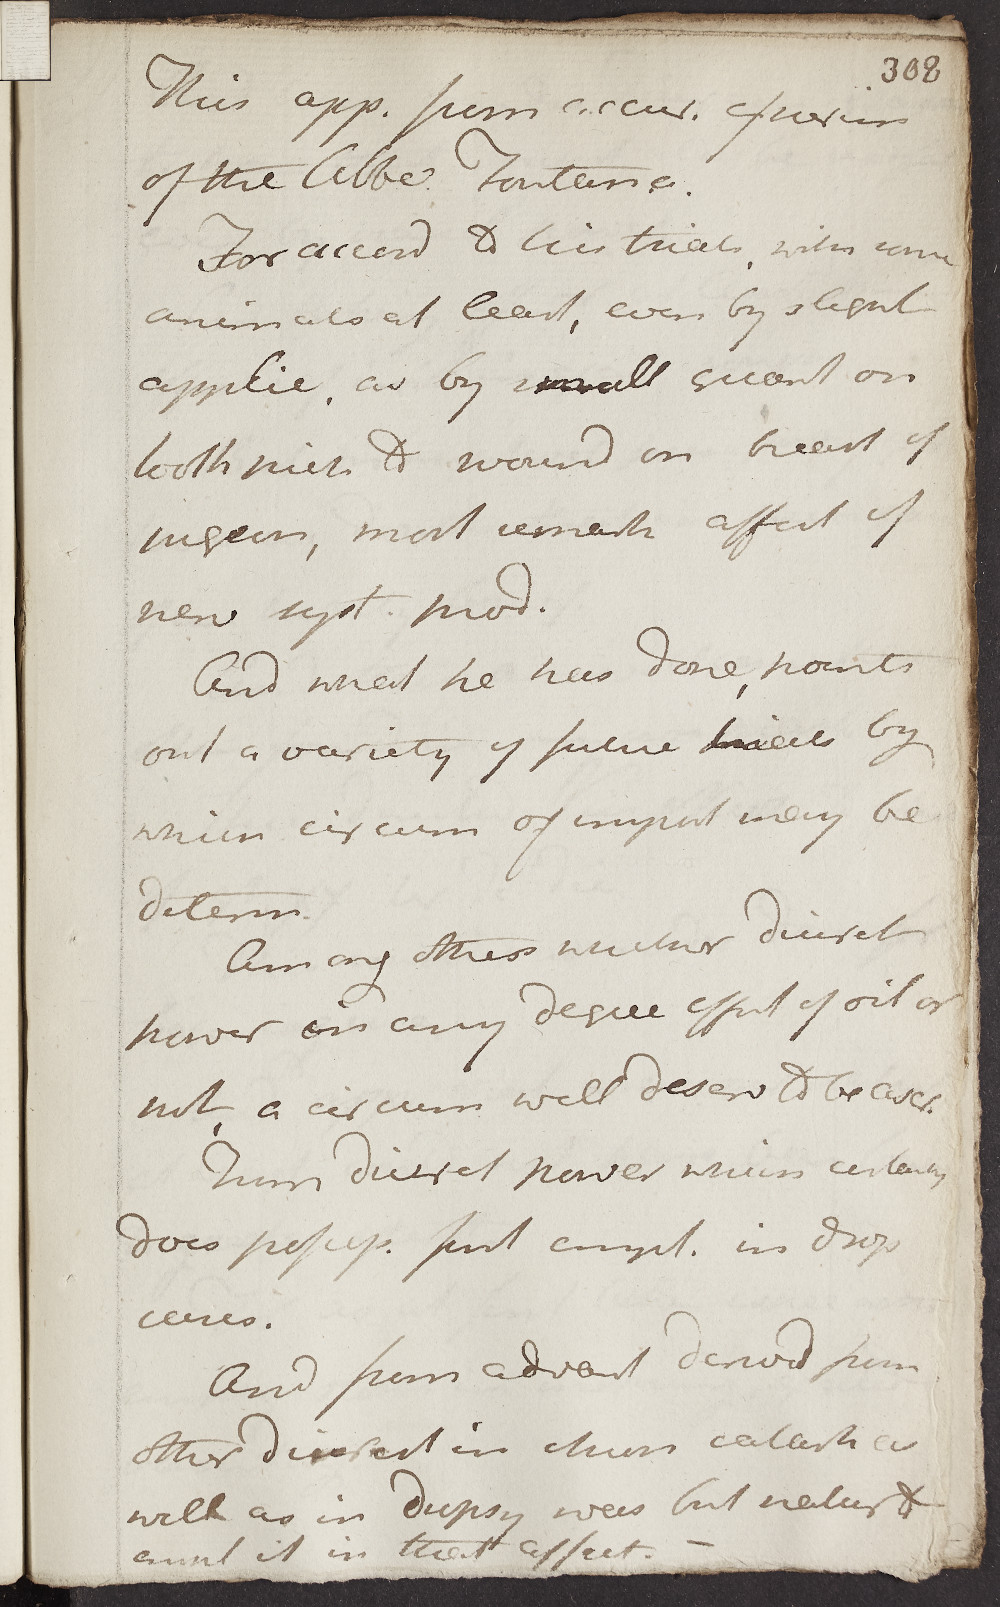 308
This app. from accur. experim
of the Abbe Fontana.
For accord to his trials, with some
animals at least, even by slight
applic, as by small quant on
tooth pick to wound on breast of
pigeon, most remark affect of
nerv syst. prod.
And what he has done, points
out a variety of future trials by
which circum of import may be
determ.
Among others whether diuret
power in any degree effect of oil or
not, a circum well deserv to be ascer.
From diuret power which certainly
does possess. first empl. in drop
cases.
And from advant derived from
other diuret in chron catarh as
well as in dropsy was but natur to
empl it in that affect. -